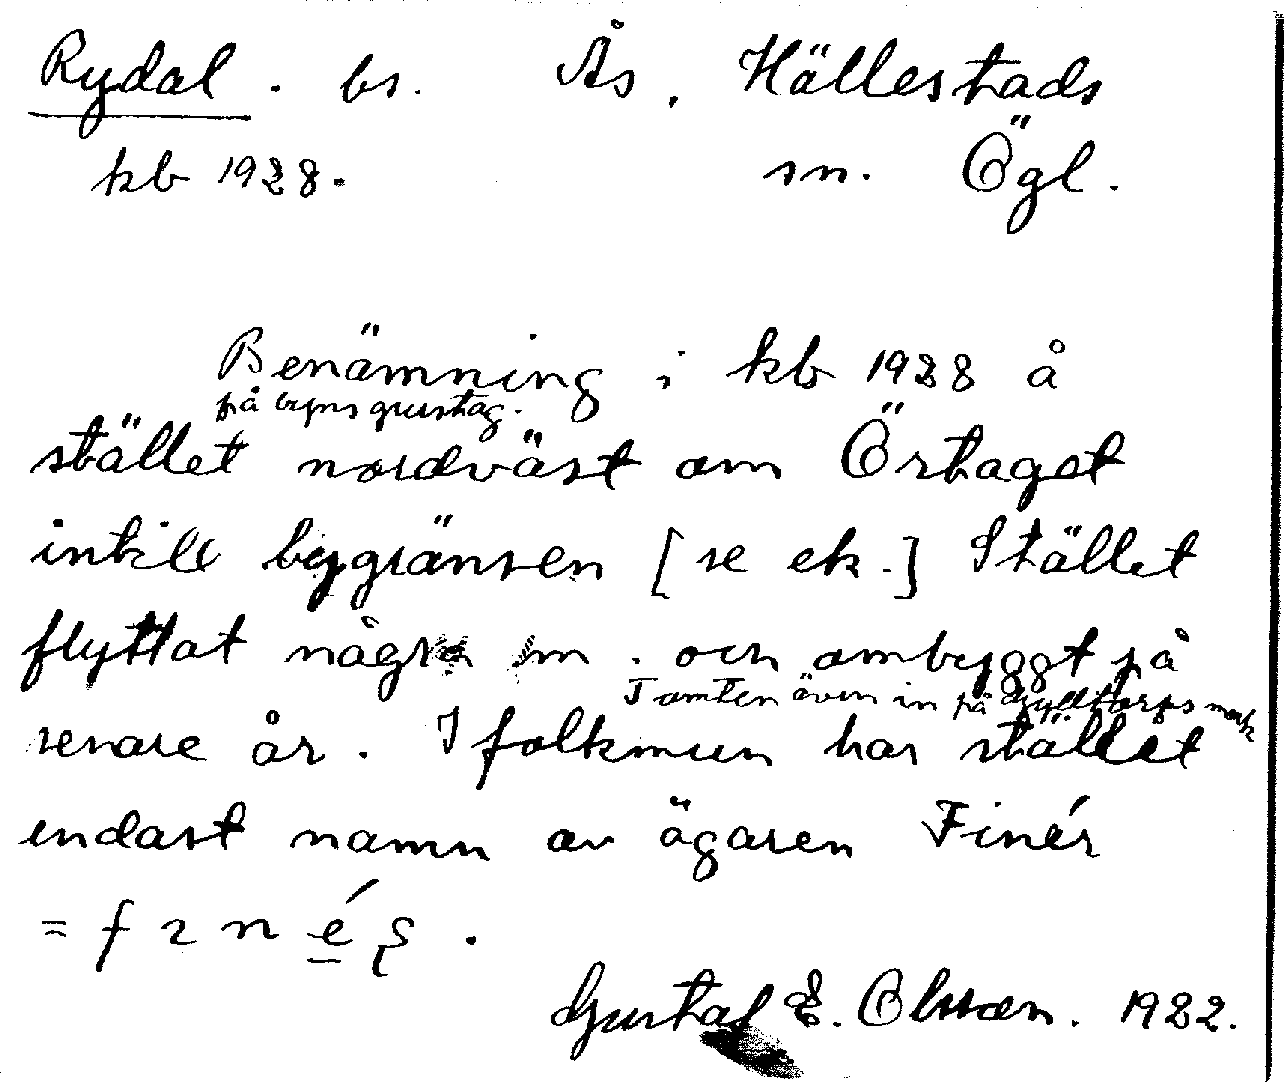 Rydal. bs. Ås, Hällestads
kb 1928. sn. Ögl.
Benämning i kb 1928 å
på byns grustag.
stället nordväst om Örtaget
intill bygränsen [se ek.] Stället
flyttat några m. och ombyggt på
Tomten även in på mark
senare år. I folkmun har stället
endast namn av ägaren Finér
= f ɪ n é
Gustaf E. Olsson. 1922.